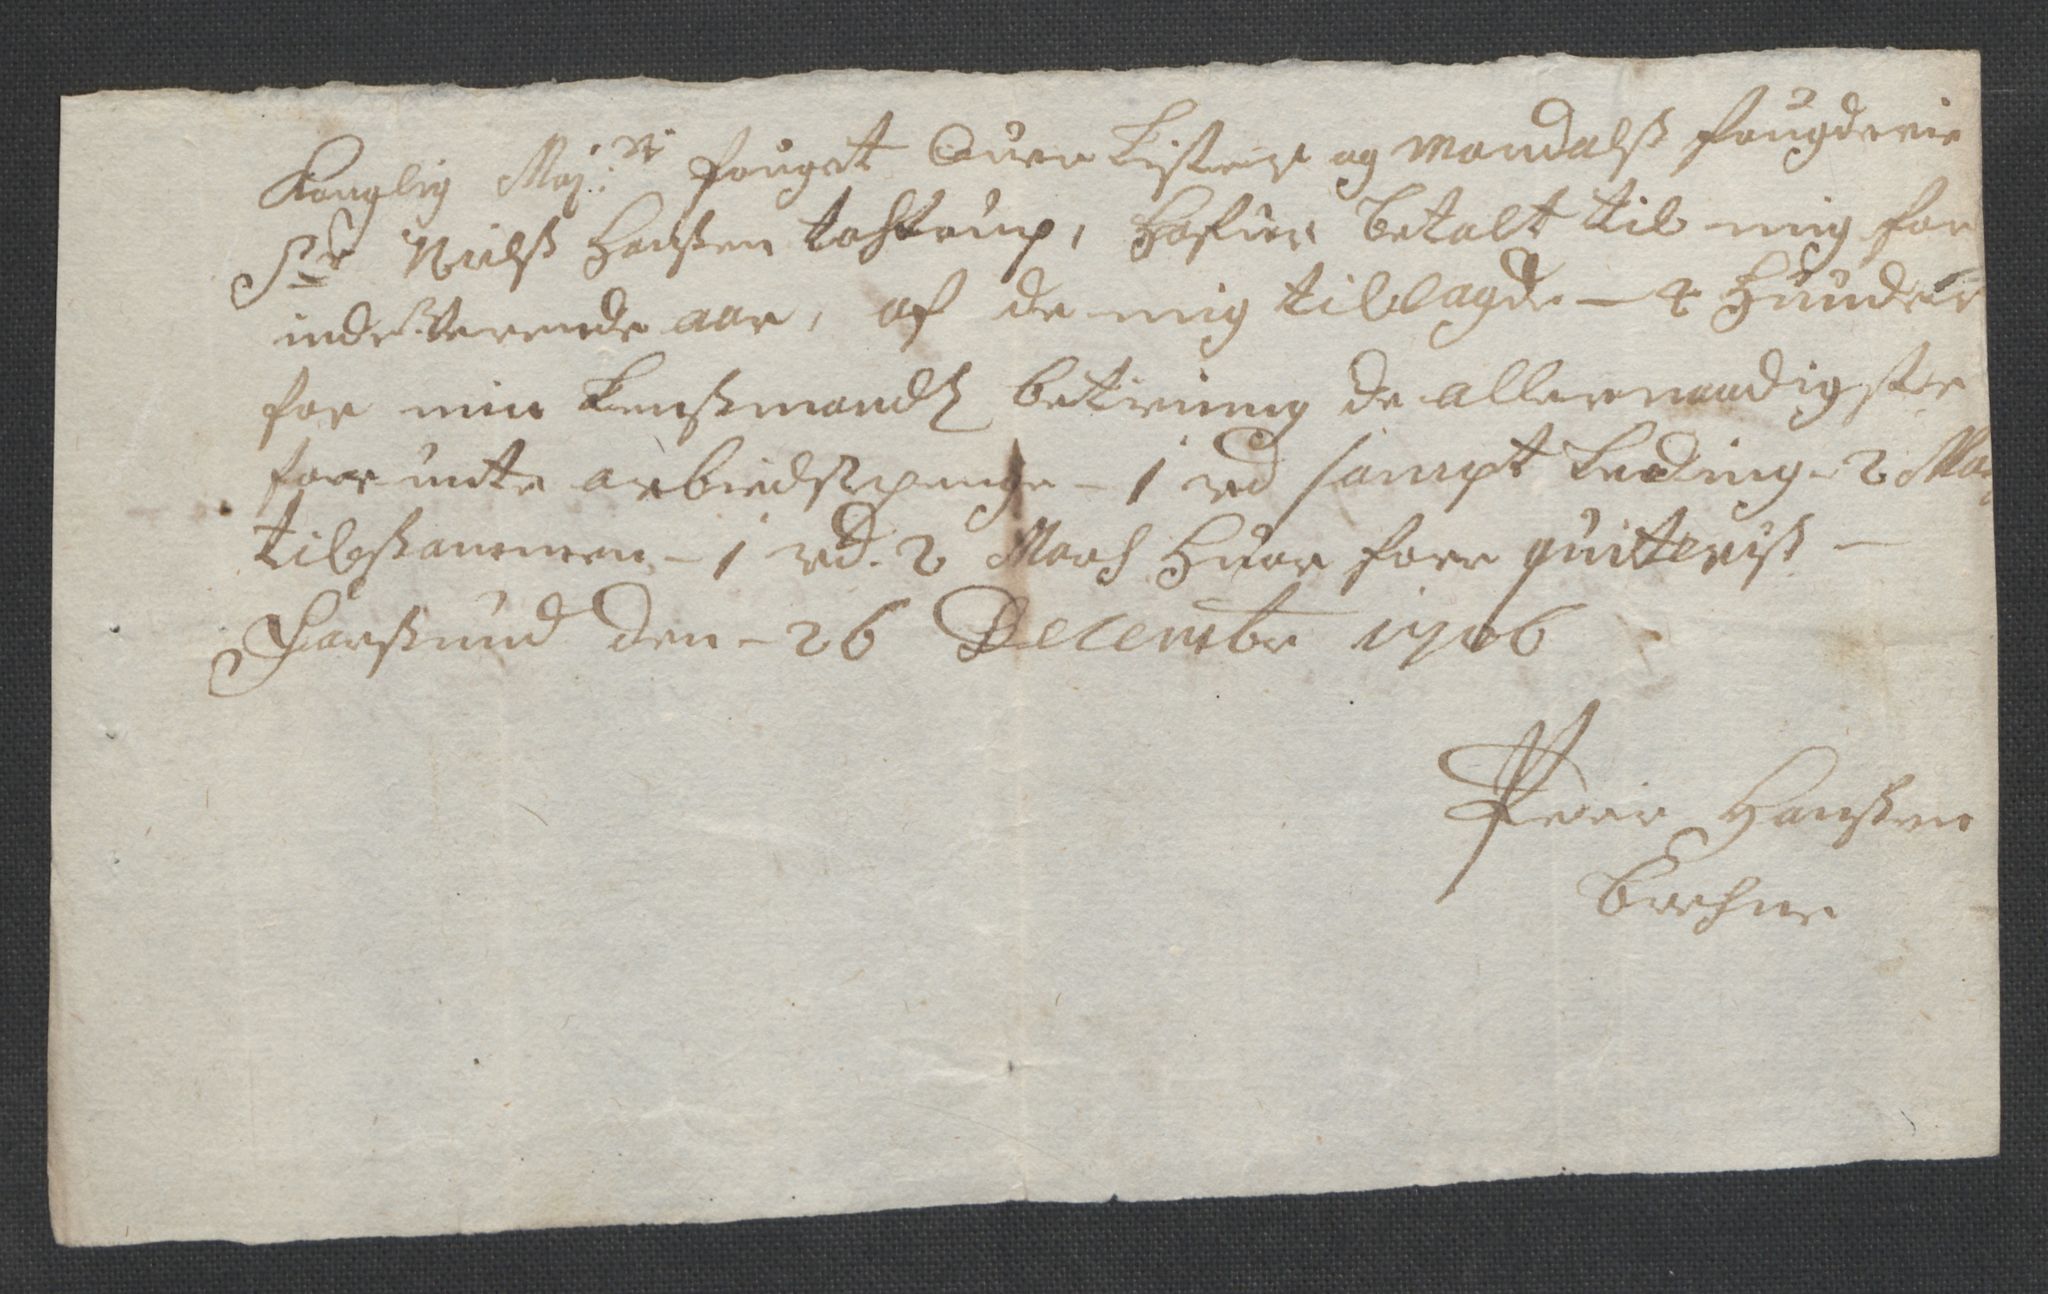 Konglig Maj:tt fougct Ouer Lister og Mandalß fougderie
Sr Nielß Hanßen tostrup, Hafuer betalt til mig for
indeVerende aar, af de mig tillagde – 4 Hunder
for min Lenßmandß betiening de allernaadigste
forunte arbeidspenge – 1 rd sampt Leding – 2 Mar
tilßammen – 1 rd. 2 March Huor fore quiteriß –
Farßund den – 26 Decembr 1706
Peder Hanßen
Brehne